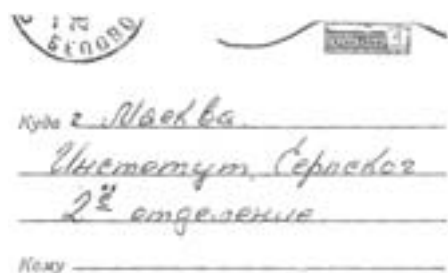 БЕЛОВО
Куда г. Москва
Институт Серпског
2ое отделение
Кому